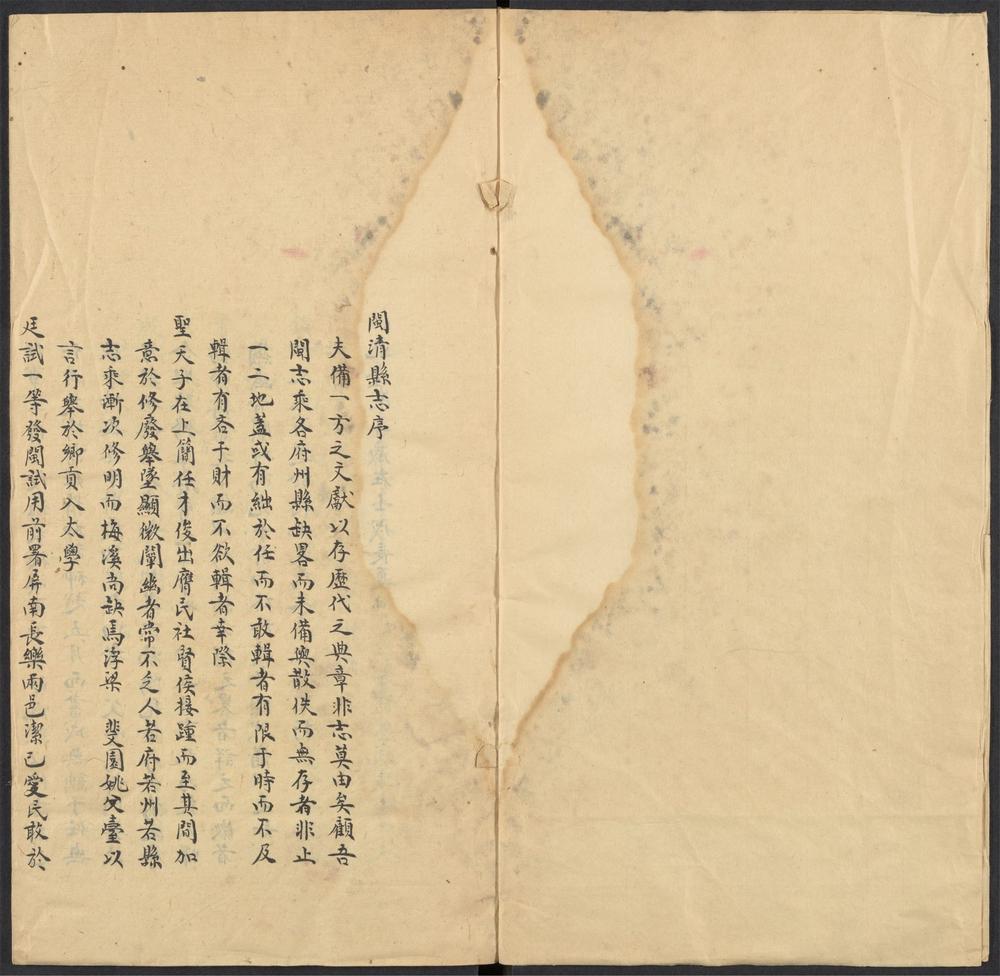 閩清縣志序
夫備一方之文獻以存歷代之典章非志莫由矣顧吾
閩志乘各府州縣缺畧而未備與散佚而無存者非止
一二地蓋或有絀於任而不敢輯者有限于時而不及
輯者有吝于財而不欲輯者幸際
聖天子在上簡任才俊出膺民社賢侯接踵而至其間加
意於修廢舉墜顯微闡幽者常不乏人若府若州若縣
志乘漸次修明而梅溪尚缺焉浮梁 斐園姚父臺以
言行舉於鄉貢入太學
廷試一等發閩試用前署屏南長樂兩邑潔己愛民敢於